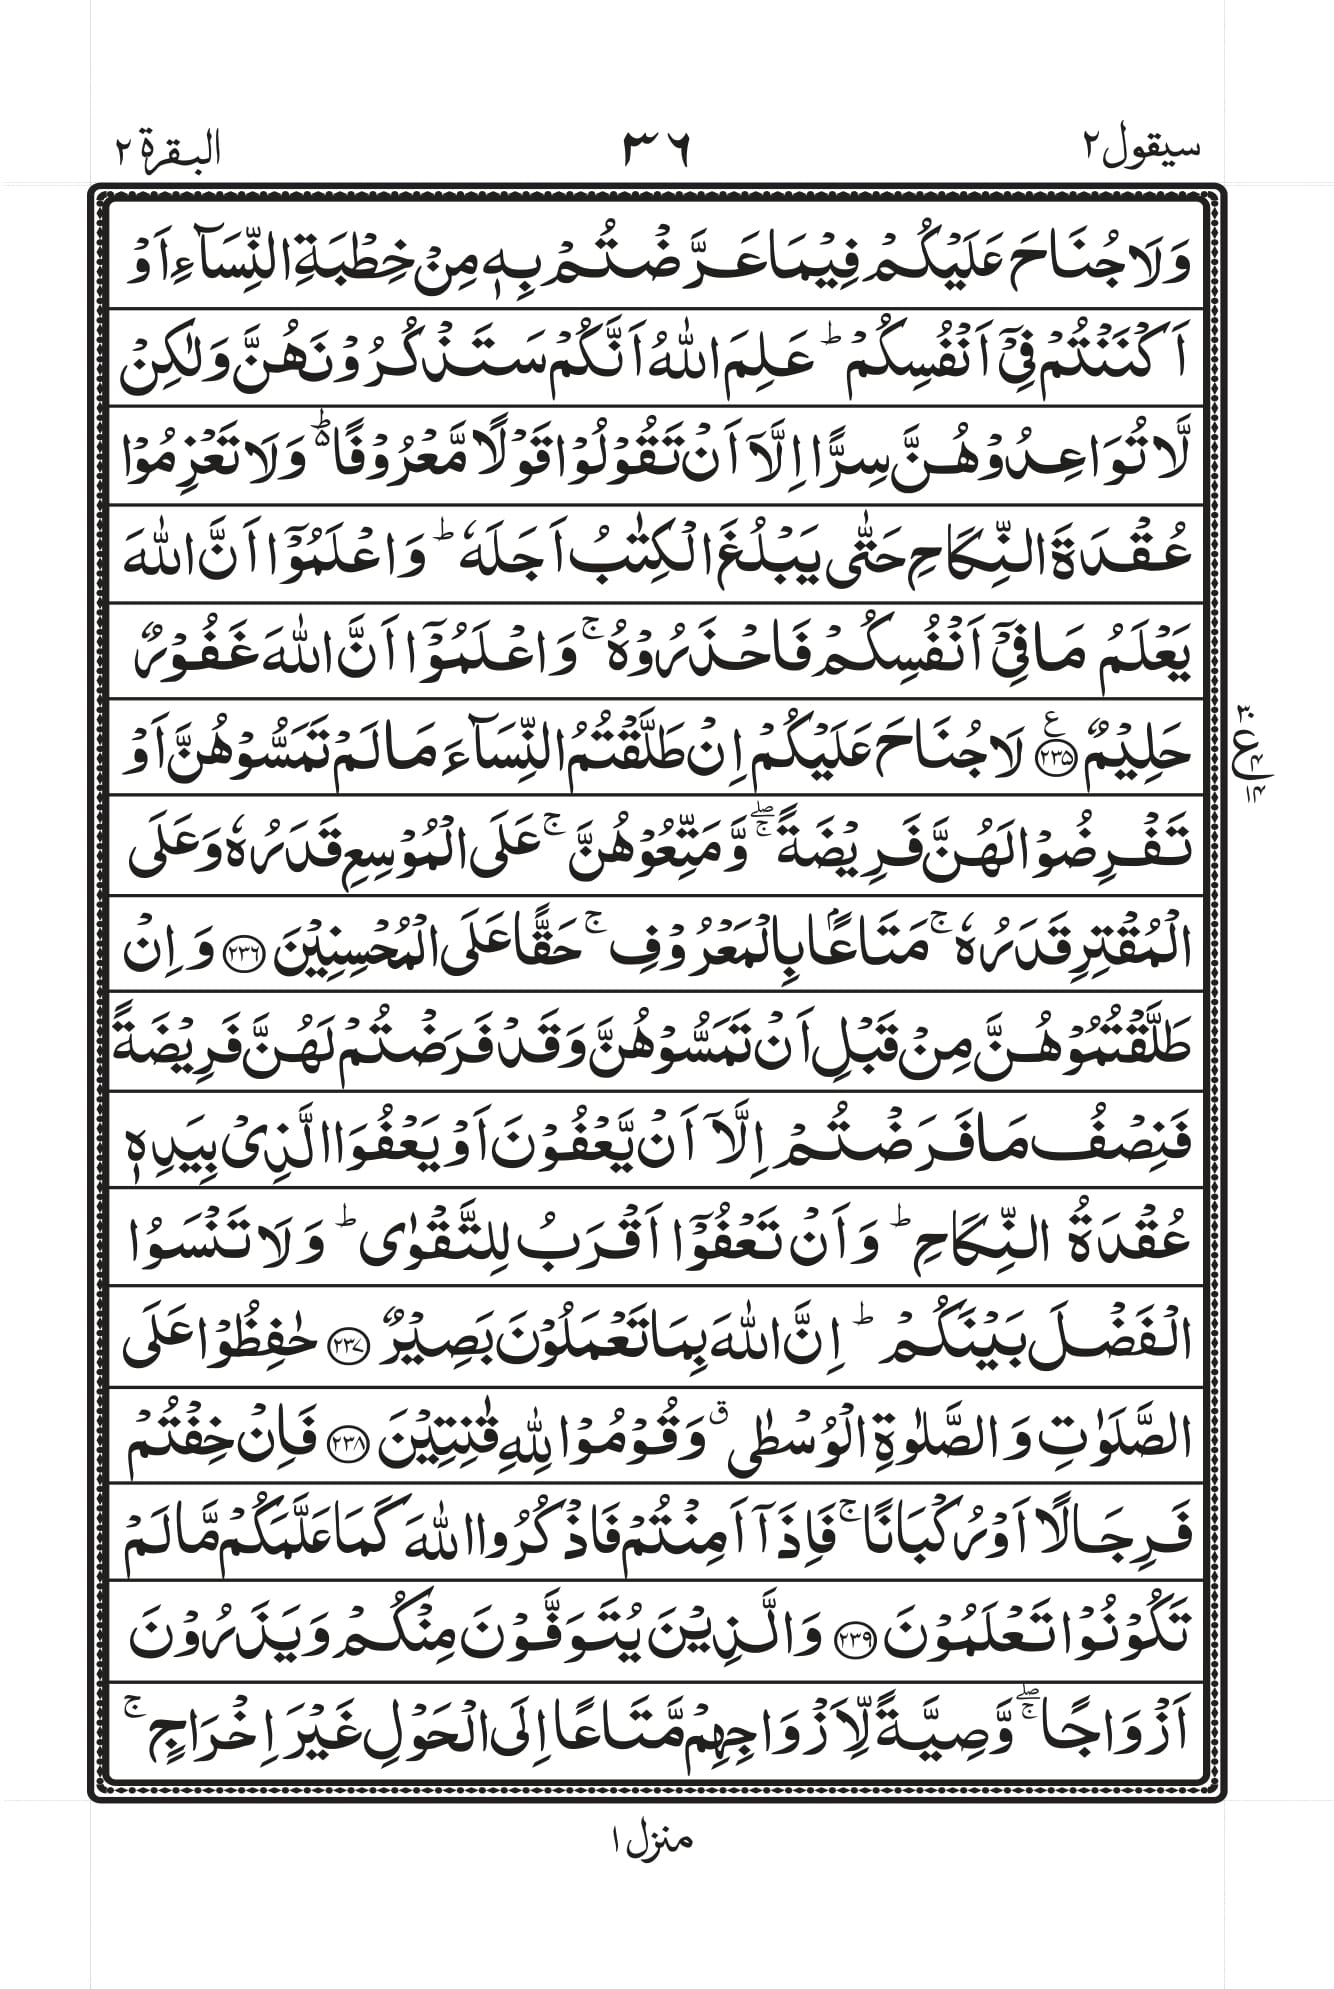 سيقول ٢
٣٦
البقرة ٢
وَلَا جُنَاحَ عَلَيْكُمْ فِيْمَا عَرَّضْتُمْ بِهٖ مِنْ خِطْبَةِ النِّسَآءِ اَوْ
اَكْنَنْتُمْ فِيْٓ اَنْفُسِكُمْ ؕ عَلِمَ اللّٰهُ اَنَّكُمْ سَتَذْكُرُوْنَهُنَّ وَلٰكِنْ
لَّا تُوَاعِدُوْهُنَّ سِرًّا اِلَّآ اَنْ تَقُوْلُوْا قَوْلًا مَّعْرُوْفًا ؕ۬ وَلَا تَعْزِمُوْا
عُقْدَةَ النِّكَاحِ حَتّٰى يَبْلُغَ الْكِتٰبُ اَجَلَهٗ ؕ وَاعْلَمُوْٓا اَنَّ اللّٰهَ
يَعْلَمُ مَا فِيْٓ اَنْفُسِكُمْ فَاحْذَرُوْهُ ۚ وَاعْلَمُوْٓا اَنَّ اللّٰهَ غَفُوْرٌ
حَلِيْمٌ ۝٢٣٥ ع لَا جُنَاحَ عَلَيْكُمْ اِنْ طَلَّقْتُمُ النِّسَآءَ مَا لَمْ تَمَسُّوْهُنَّ اَوْ
٣٠ ع ٤ ١٤
تَفْرِضُوْا لَهُنَّ فَرِيْضَةً ۖۚ وَّمَتِّعُوْهُنَّ ۚ عَلَى الْمُوْسِعِ قَدَرُهٗ وَعَلَى
الْمُقْتِرِ قَدَرُهٗ ۚ مَتَاعًۢا بِالْمَعْرُوْفِ ۚ حَقًّا عَلَى الْمُحْسِنِيْنَ ۝٢٣٦ وَاِنْ
طَلَّقْتُمُوْهُنَّ مِنْ قَبْلِ اَنْ تَمَسُّوْهُنَّ وَقَدْ فَرَضْتُمْ لَهُنَّ فَرِيْضَةً
فَنِصْفُ مَا فَرَضْتُمْ اِلَّآ اَنْ يَّعْفُوْنَ اَوْ يَعْفُوَا الَّذِيْ بِيَدِهٖ
عُقْدَةُ النِّكَاحِ ؕ وَاَنْ تَعْفُوْٓا اَقْرَبُ لِلتَّقْوٰى ؕ وَلَا تَنْسَوُا
الْفَضْلَ بَيْنَكُمْ ؕ اِنَّ اللّٰهَ بِمَا تَعْمَلُوْنَ بَصِيْرٌ ۝٢٣٧ حٰفِظُوْا عَلَى
الصَّلَوٰتِ وَالصَّلٰوةِ الْوُسْطٰى ق وَقُوْمُوْا لِلّٰهِ قٰنِتِيْنَ ۝٢٣٨ فَاِنْ خِفْتُمْ
فَرِجَالًا اَوْ رُكْبَانًا ۚ فَاِذَآ اَمِنْتُمْ فَاذْكُرُوا اللّٰهَ كَمَا عَلَّمَكُمْ مَّا لَمْ
تَكُوْنُوْا تَعْلَمُوْنَ ۝٢٣٩ وَالَّذِيْنَ يُتَوَفَّوْنَ مِنْكُمْ وَيَذَرُوْنَ
اَزْوَاجًا ۖۚ وَّصِيَّةً لِّاَزْوَاجِهِمْ مَّتَاعًا اِلَى الْحَوْلِ غَيْرَ اِخْرَاجٍ ۚ
منزل ١